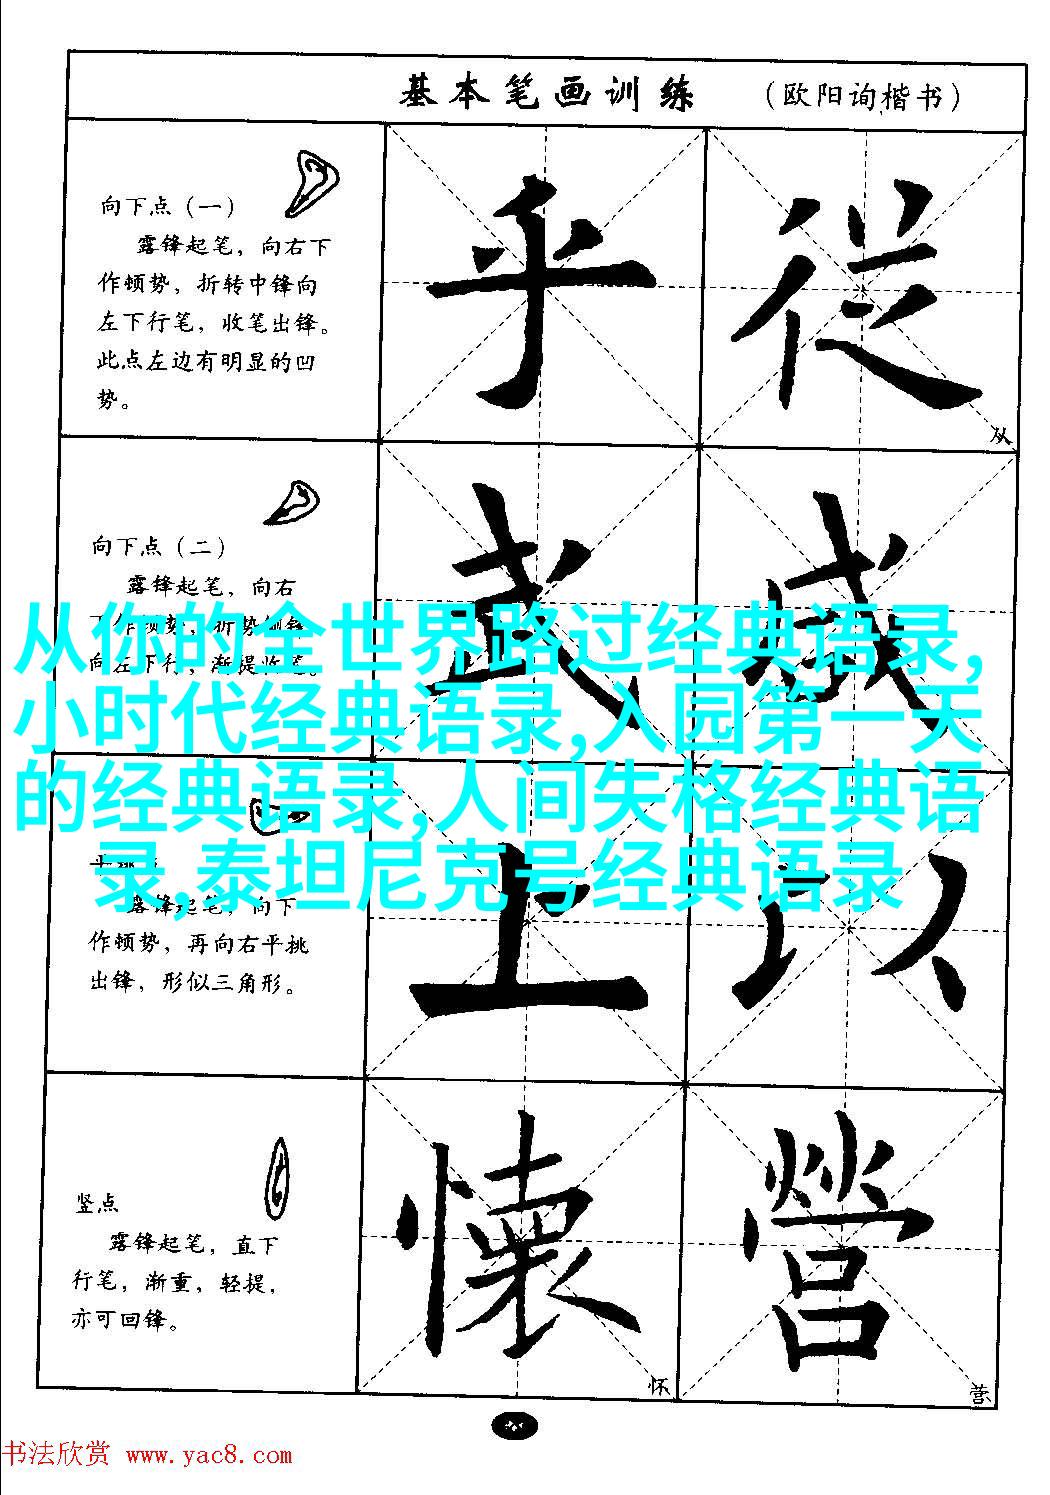 基本笔画训练 （欧阳询楷书）
向下点（一）
露锋起笔，向右下
作顿势，折转中锋向
左下行笔，收笔出锋。
此点左边有明显的凹
势。
乎 從
从
向下点（二）
露锋起笔，向右
下作顿势，折势侧锋
向左下行，渐提收笔。
武 感
从你的全世界路过经典语录,
小时代经典语录,入园第一天
的经典语录,人间失格经典语
录,泰坦尼克号经典语录
平挑
露锋起笔，向下
作顿势，再向右平挑
出锋，形似三角形。
上 以
竖点
露锋起笔，直下
行笔，渐重，轻提，
亦可回锋。
懷 營
怀 营
书法欣赏 www.yac8.com